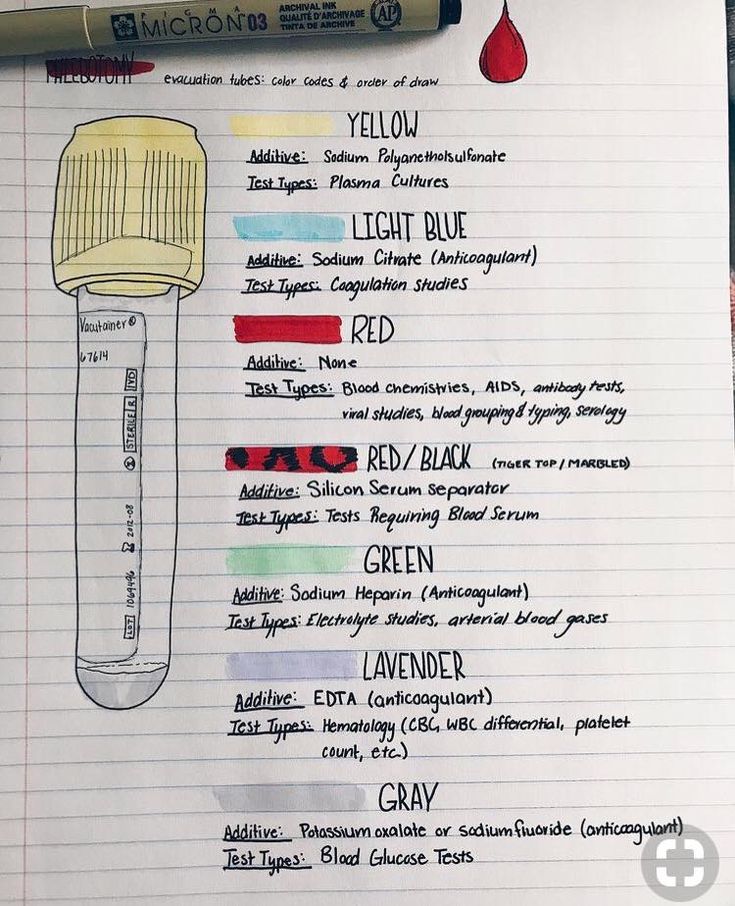 PIGMA
MICRON 03
ARCHIVAL INK
QUALITÉ D'ARCHIVAGE
TINTA DE ARCHIVE
AP
PHLEBOTOMY evacuation tubes: color codes & order of draw
YELLOW
Additive: Sodium Polyanetholsulfonate
Test Types: Plasma Cultures
LIGHT BLUE
Additive: Sodium Citrate (Anticoagulant)
Test Types: Coagulation studies
RED
Additive: None
Test Types: Blood chemistries, AIDS, antibody tests,
viral studies, blood grouping & typing, serology
RED/BLACK (TIGER TOP/MARBLED)
Additive: Silicon Serum separator
Test Types: Tests Requiring Blood Serum
GREEN
Additive: Sodium Heparin (Anticoagulant)
Test Types: Electrolyte studies, arterial blood gases
LAVENDER
Additive: EDTA (anticoagulant)
Test Types: Hematology (CBC, WBC differential, platelet
count, etc.)
GRAY
Additive: Potassium oxalate or sodium fluoride (anticoagulant)
Test Types: Blood Glucose Tests
Vacutainer®
67614
LOT 1069496 2012-08 STERILE R IVD